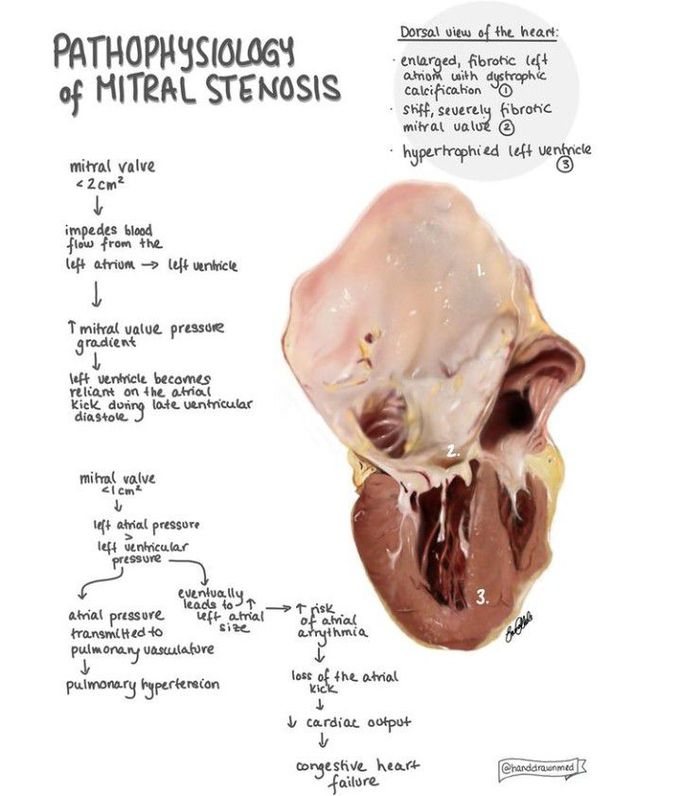 PATHOPHYSIOLOGY
of MITRAL STENOSIS
Dorsal view of the heart:
· enlarged, fibrotic left
atrium with dystrophic
calcification ①
· stiff, severely fibrotic
mitral valve ②
· hypertrophied left ventricle
③
mitral valve
< 2 cm²
↓
impedes blood
flow from the
left atrium → left ventricle
↓
↑ mitral valve pressure
gradient
↓
left ventricle becomes
reliant on the atrial
kick during late ventricular
diastole
mitral valve
<1 cm²
↓
left atrial pressure
>
left ventricular
pressure
atrial pressure
transmitted to
pulmonary vasculature
↓
pulmonary hypertension
eventually
leads to ↑
left atrial
size
→ ↑ risk
of atrial
arrythmia
↓
loss of the atrial
kick
↓
↓ cardiac output
↓
congestive heart
failure
1.
2.
3.
@handdrawnmed